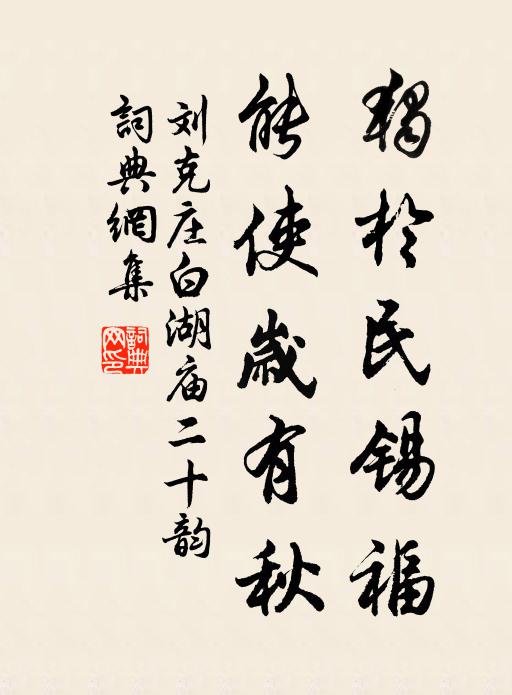 獨於民錫福
能使歲有秋
刘克庄白湖庙二十韵
詞典網集
詞典
网印